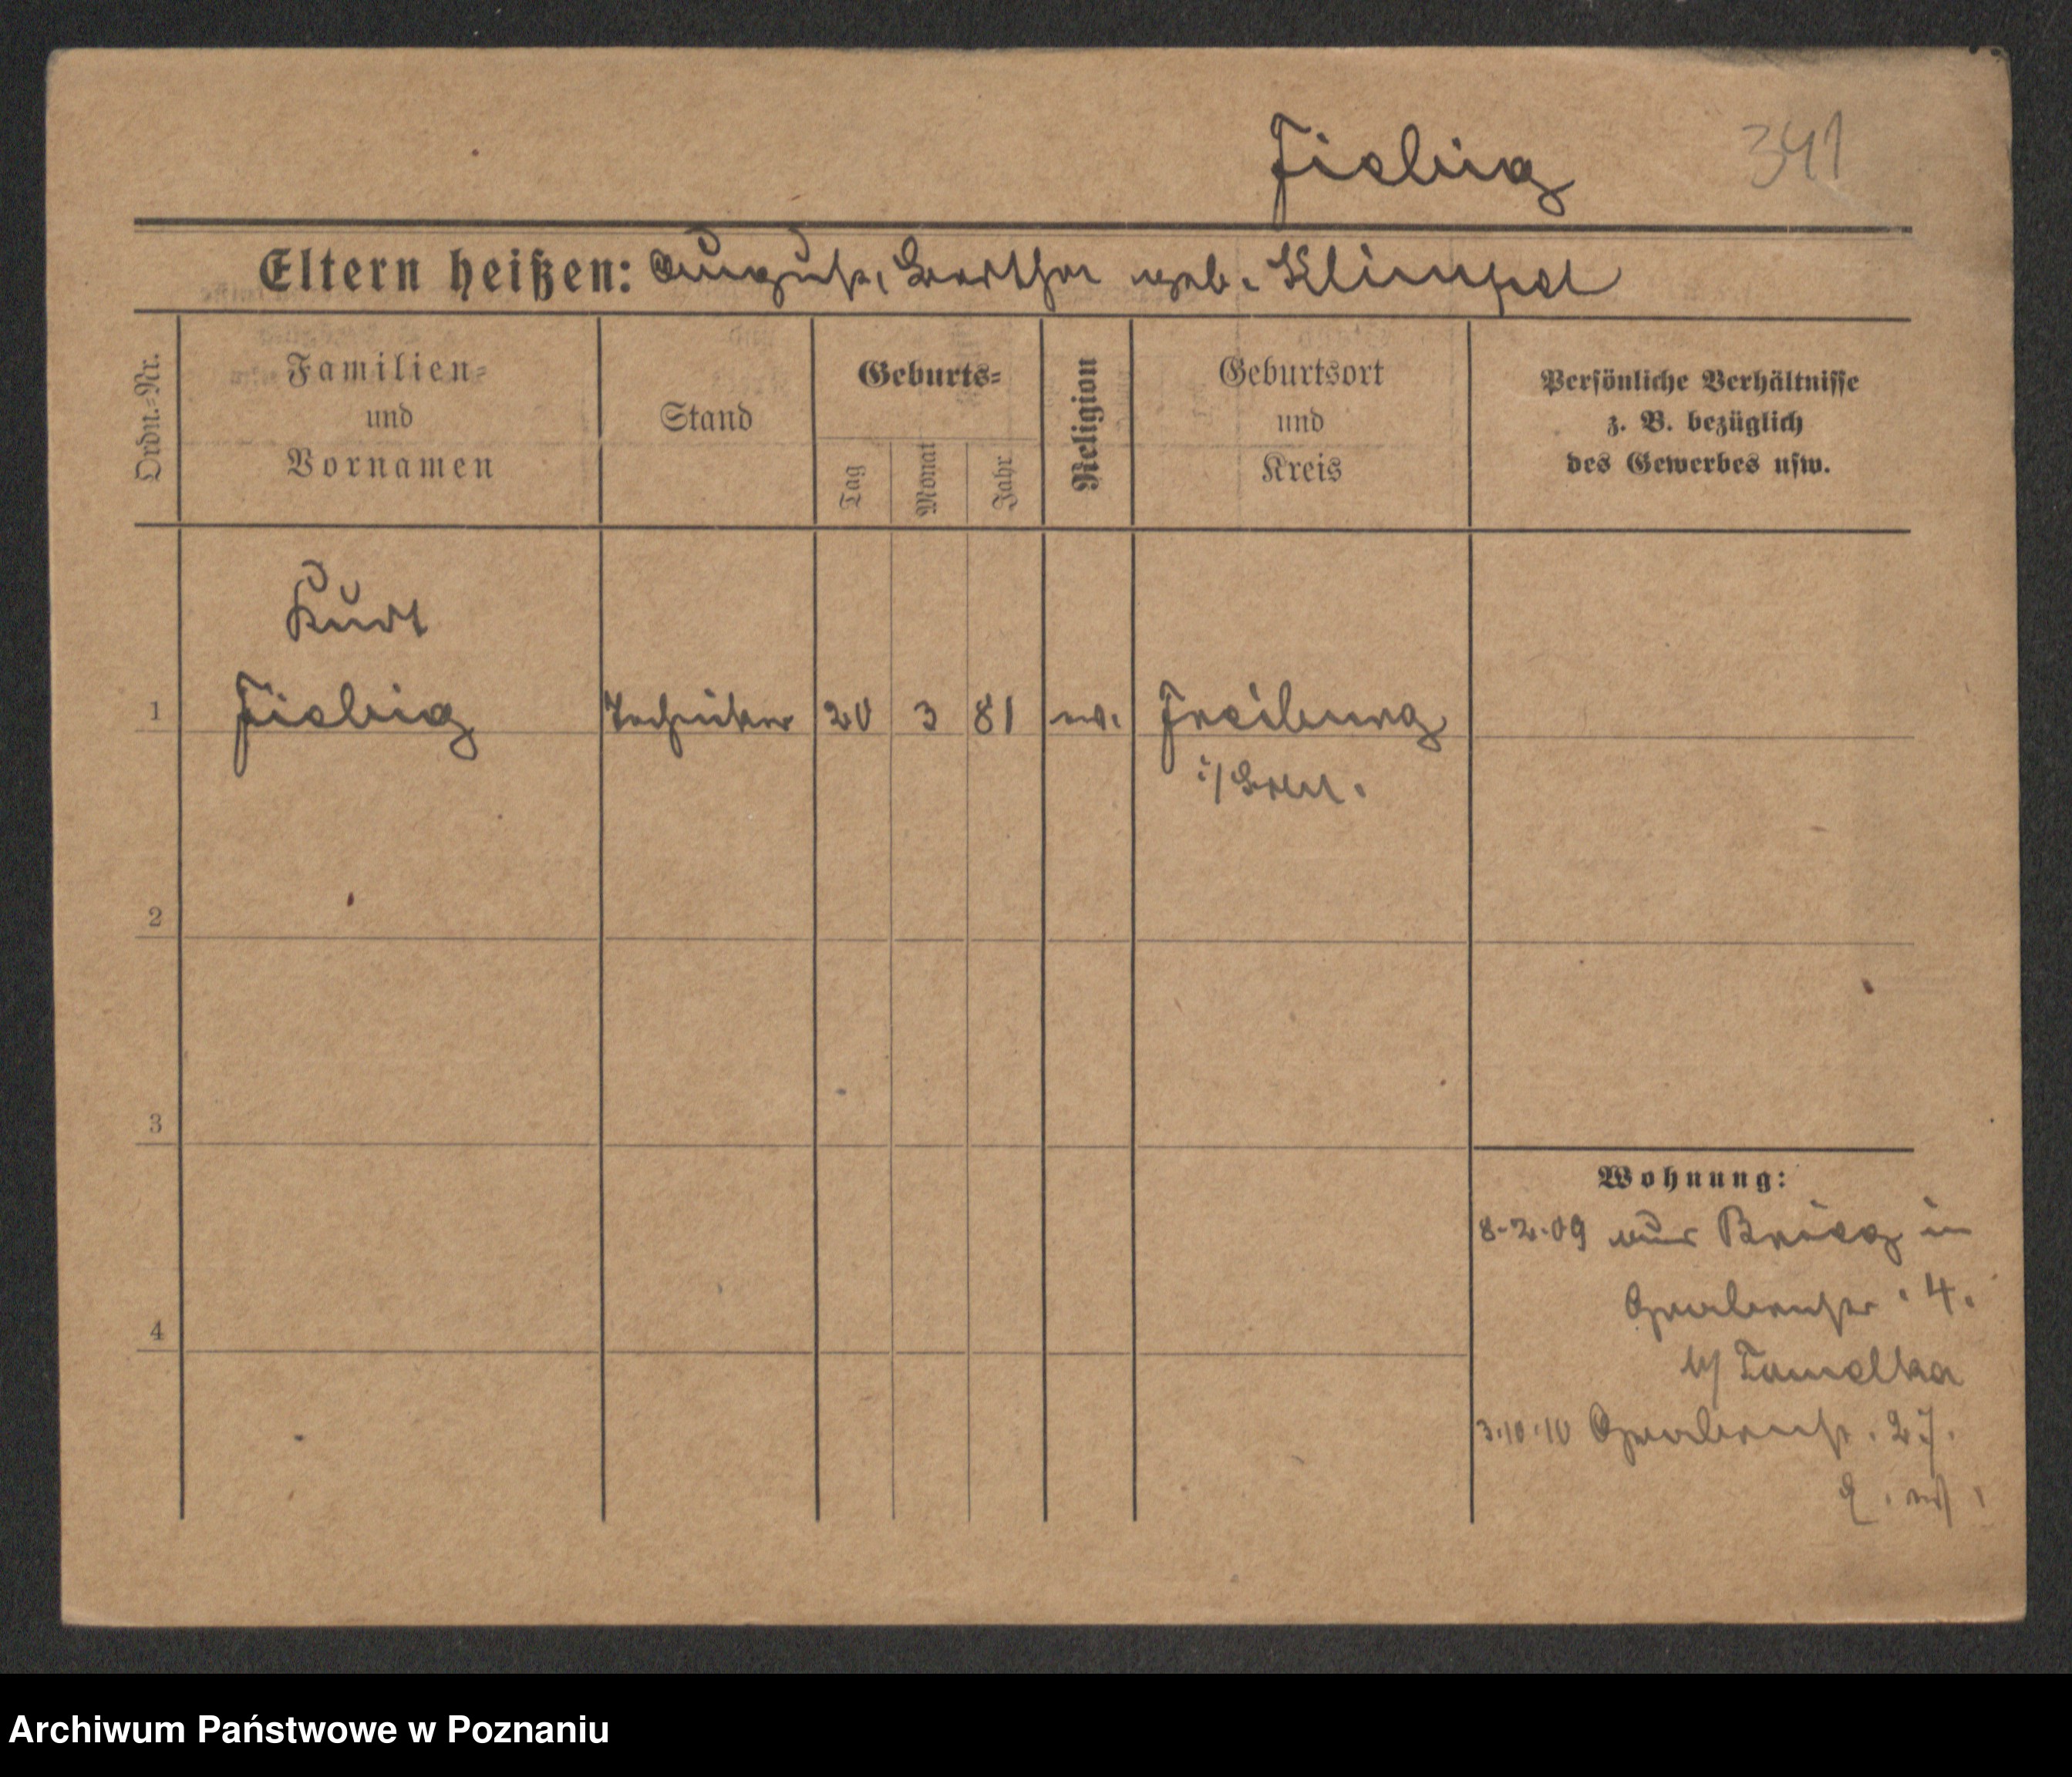 Fiebig 341
Eltern heißen: August, Bertha geb. Klimpel
Ordn.=Nr.
Familien=
und
Vornamen
Stand
Geburts=
Tag
Monat
Jahr
Religion
Geburtsort
und
Kreis
Persönliche Verhältnisse
z. B. bezüglich
des Gewerbes usw.
Kurt
1 Fiebig Techniker 20 3 81 ev. Freiburg
2
3
4
Wohnung:
8.2.09 aus Brieg in
Grabenstr. 4.
b/
3.10.10 Grabenstr. 27.
Archiwum Państwowe w Poznaniu